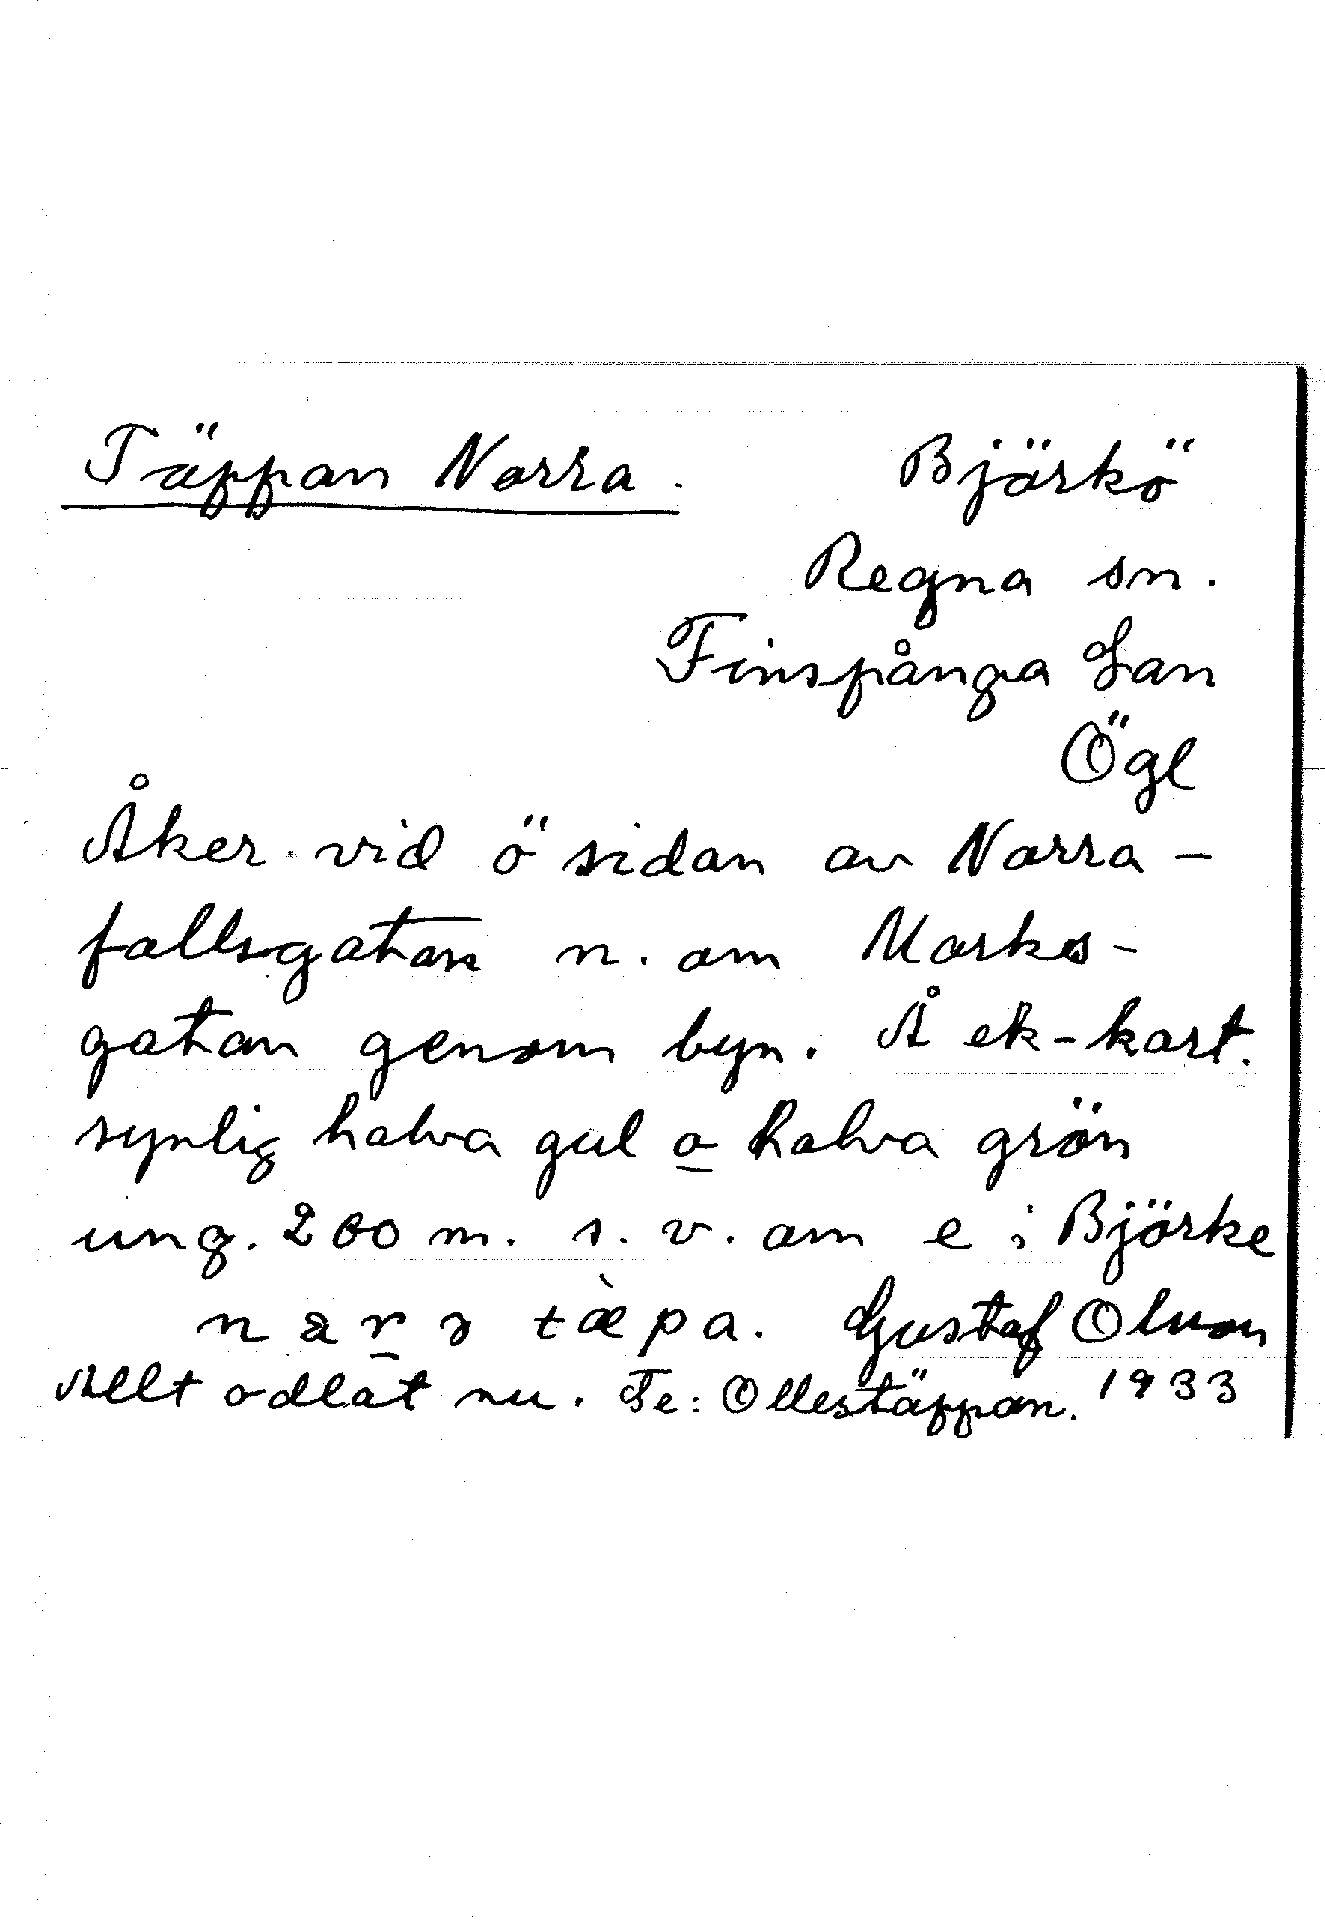 Täppan Norra. Björkö
Regna sn.
Finspånga län
Ögl
Åker vid ö sidan av Norra-
fallsgatan n. om Marks-
gatan genom byn. Å ek-kart.
synlig halva gul o halva grön
ung. 200 m. s. v. om e i Björke
nar̲ɜ tæ̀pa. Gustaf Olsson
Allt odlat nu. Te: Ollestäppan. 1933